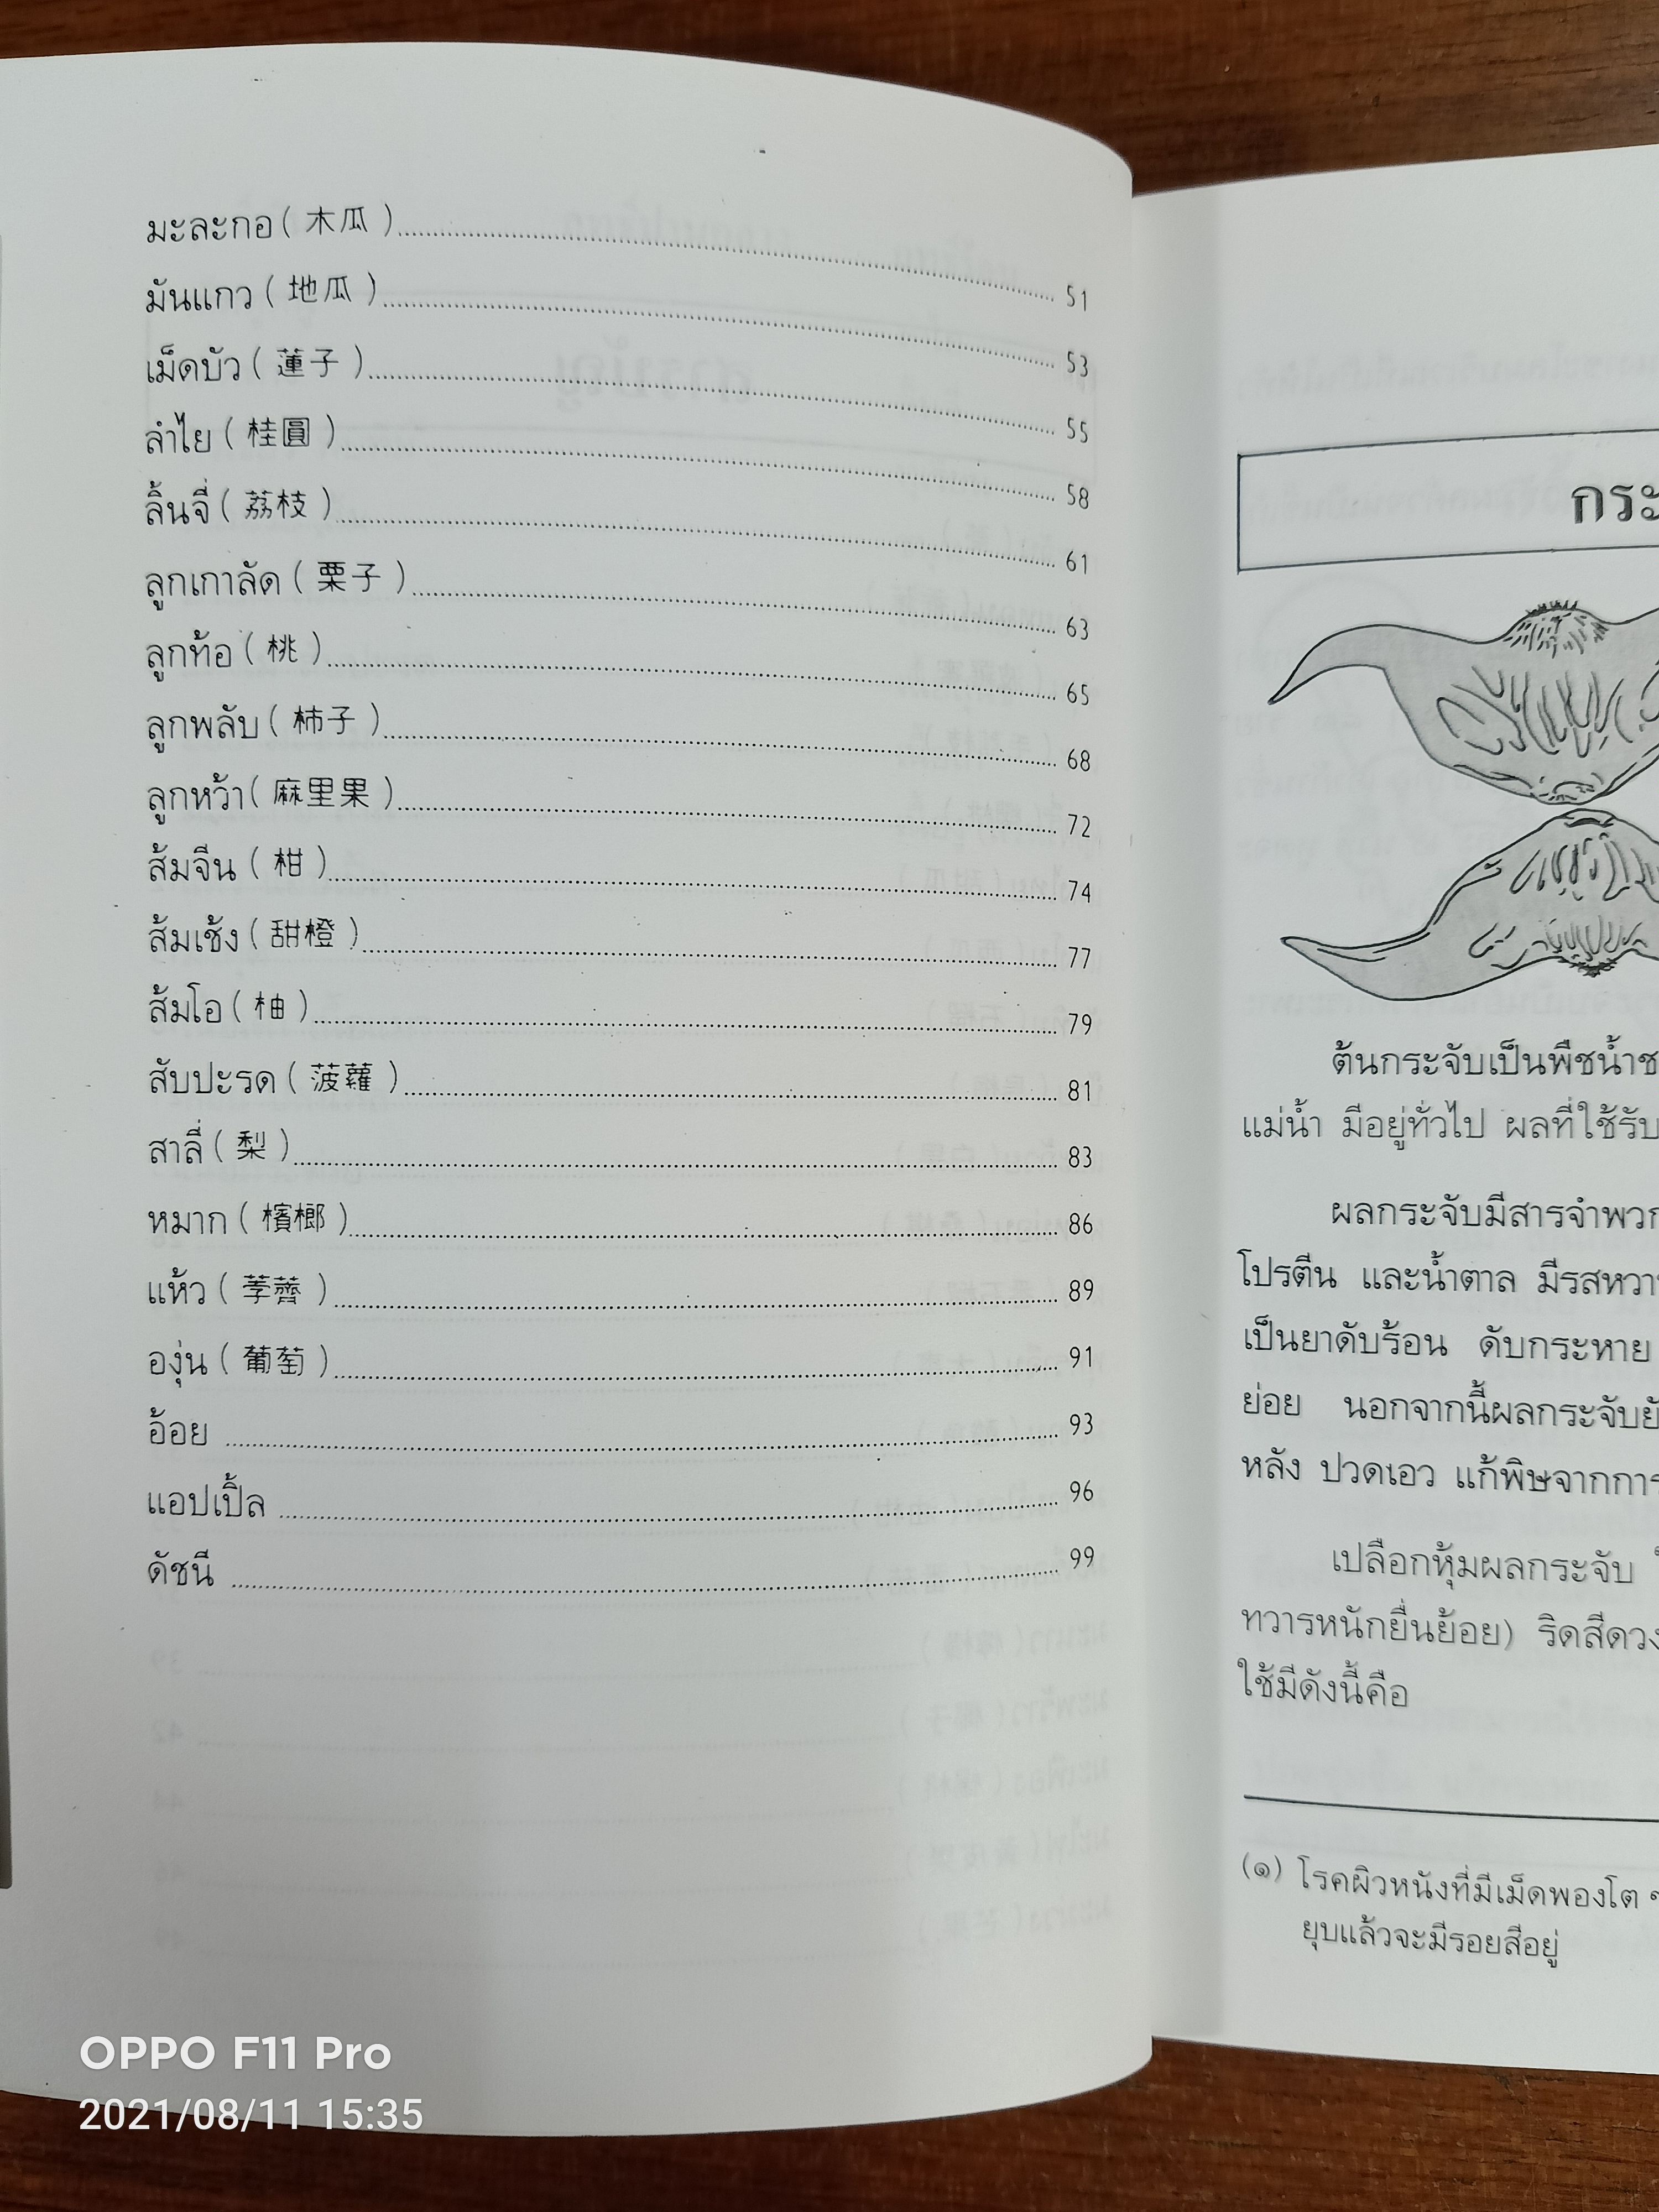 มะละกอ ( 木瓜 ) 51
มันแกว ( 地瓜 ) 53
เม็ดบัว ( 蓮子 ) 55
ลำไย ( 桂圓 ) 58
ลิ้นจี่ ( 荔枝 ) 61
ลูกเกาลัด ( 栗子 ) 63
ลูกท้อ ( 桃 ) 65
ลูกพลับ ( 柿子 ) 68
ลูกหว้า ( 麻里果 ) 72
ส้มจีน ( 柑 ) 74
ส้มเช้ง ( 甜橙 ) 77
ส้มโอ ( 柚 ) 79
สับปะรด ( 菠蘿 ) 81
สาลี่ ( 梨 ) 83
หมาก ( 檳榔 ) 86
แห้ว ( 荸薺 ) 89
องุ่น ( 葡萄 ) 91
อ้อย 93
แอปเปิ้ล 96
ดัชนี 99
กระ
ต้นกระจับเป็นพืชน้ำช
แม่น้ำ มีอยู่ทั่วไป ผลที่ใช้รับ
ผลกระจับมีสารจำพวก
โปรตีน และน้ำตาล มีรสหวา
เป็นยาดับร้อน ดับกระหาย
ย่อย นอกจากนี้ผลกระจับยั
หลัง ปวดเอว แก้พิษจากการ
เปลือกหุ้มผลกระจับ ใ
ทวารหนักยื่นย้อย) ริดสีดวง
ใช้มีดังนี้คือ
(๑) โรคผิวหนังที่มีเม็ดพองโต
ยุบแล้วจะมีรอยสีอยู่
OPPO F11 Pro
2021/08/11 15:35